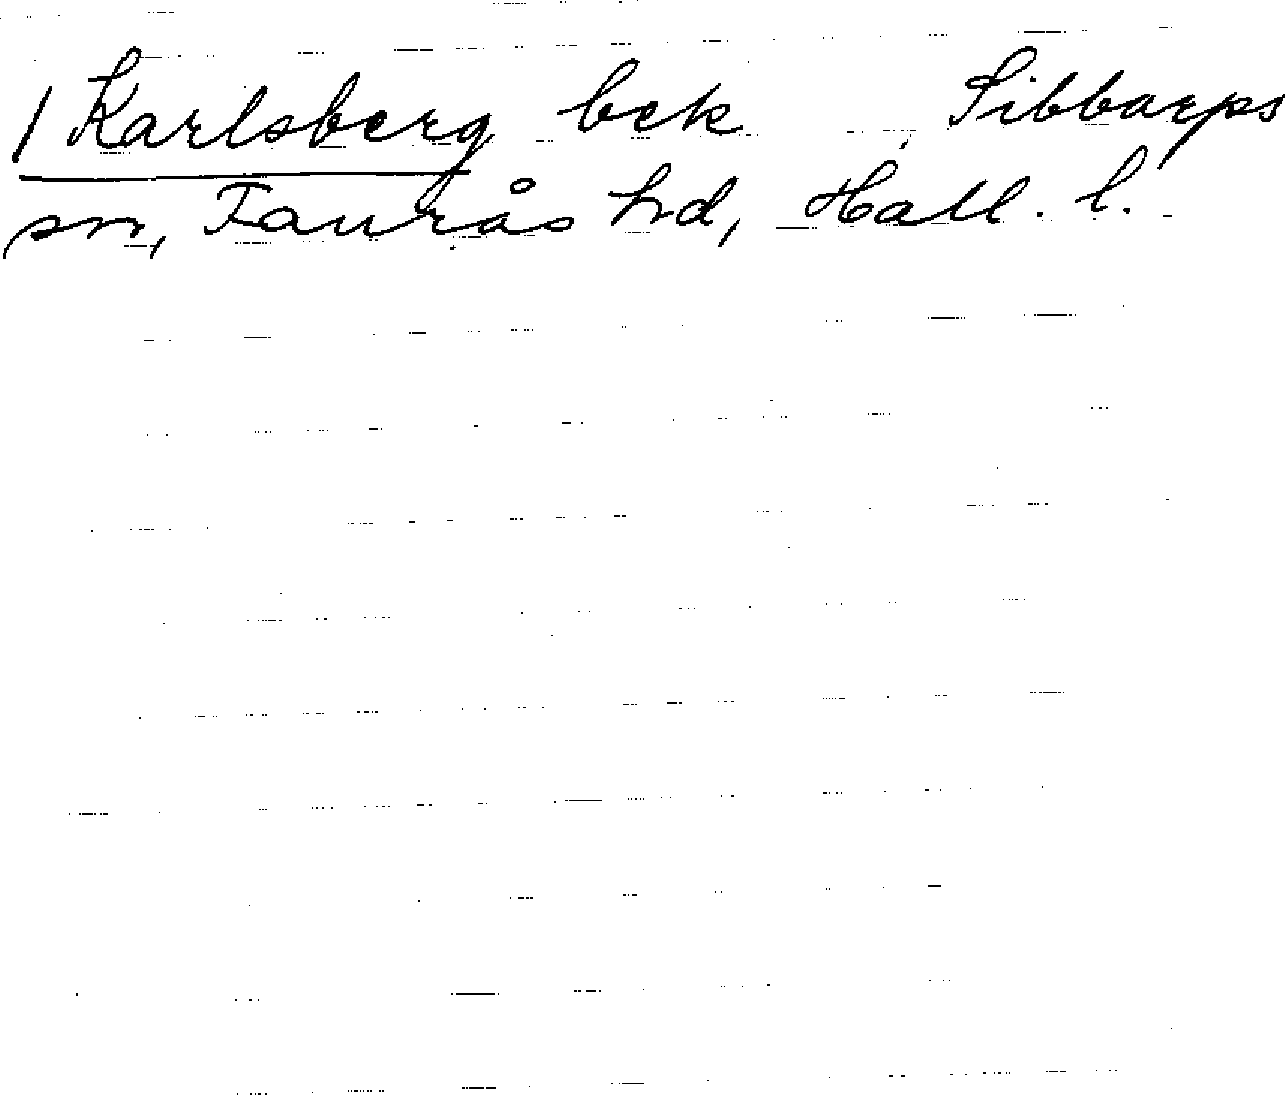 / Karlsberg bek , Sibbarps
sn, Faurås hd, Hall. l.